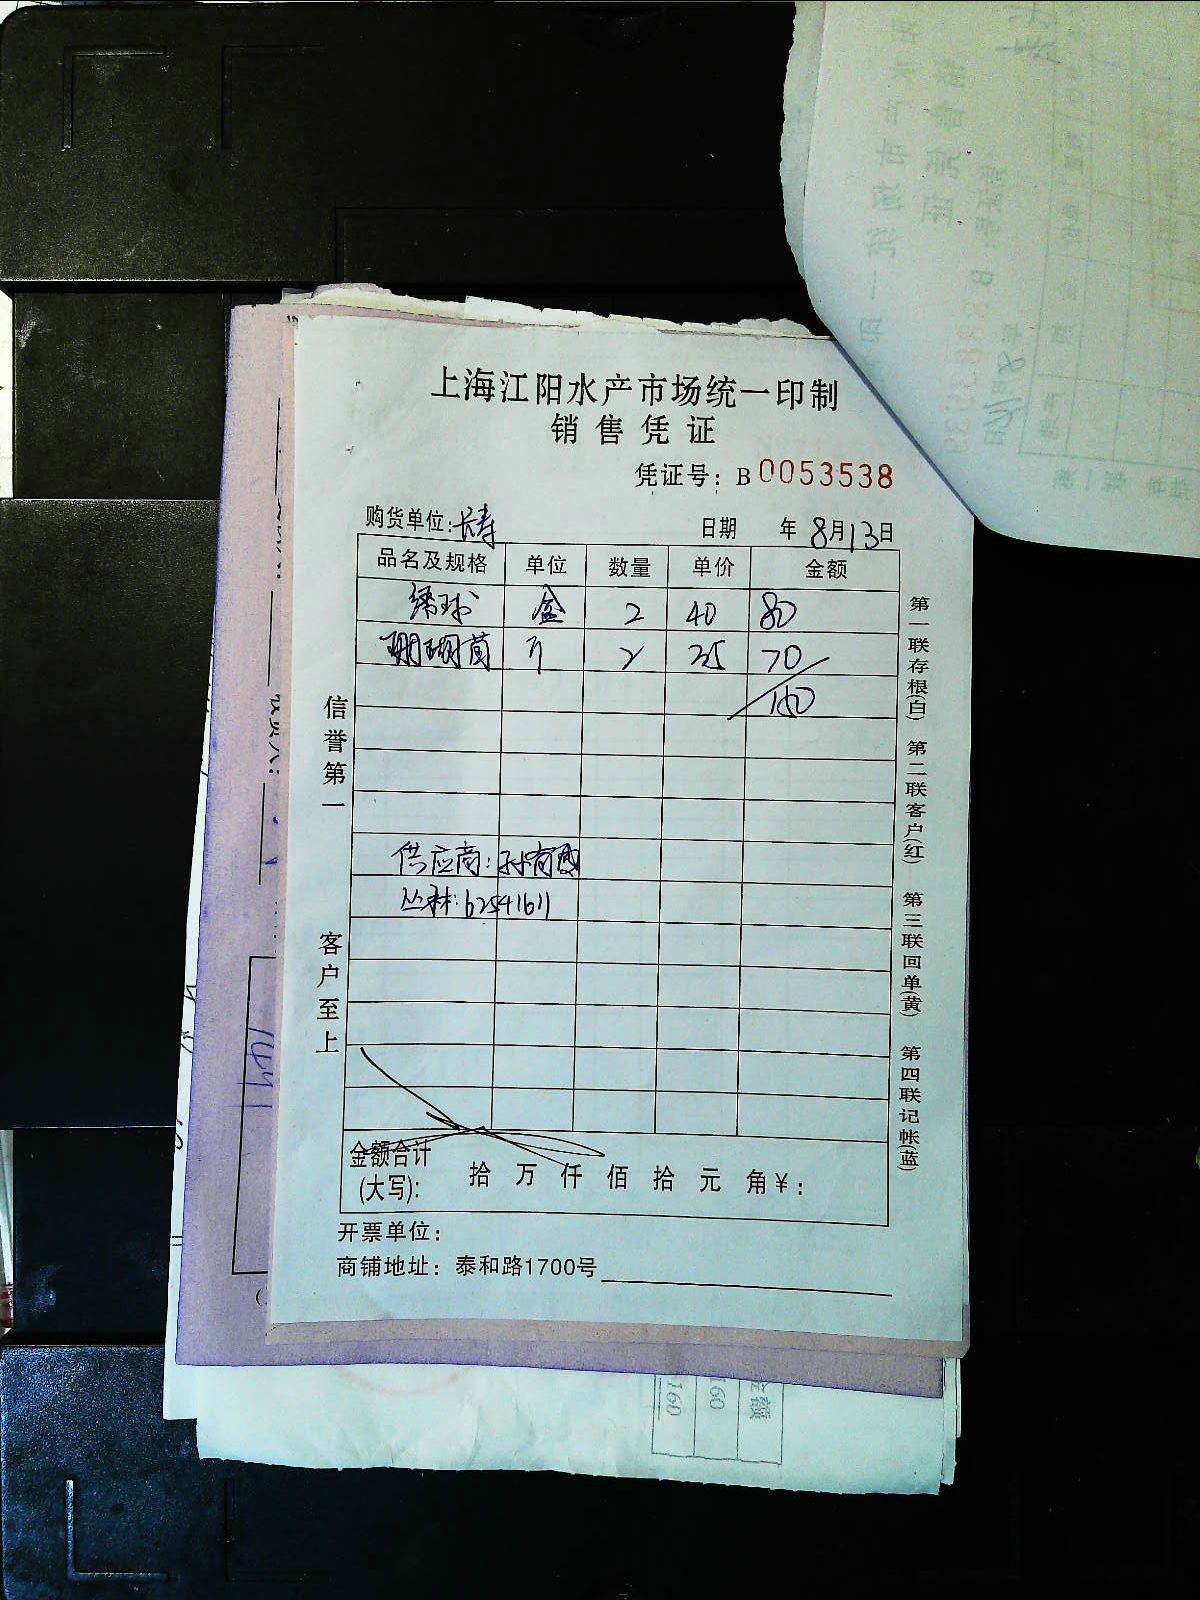 上海江阳水产市场统一印制
销售凭证
凭证号：B 0053538
购货单位：长寿 日期 年 8月13日
品名及规格 单位 数量 单价 金额
绣球 盒 2 40 80
珊瑚菌 斤 2 35 70
150
供应商：孙育国
丛林：62541611
金额合计(大写)： 拾 万 仟 佰 拾 元 角 ¥：
开票单位：
商铺地址：泰和路1700号
信誉第一
客户至上
第一联存根(白) 第二联客户(红) 第三联回单(黄) 第四联记帐(蓝)
1441
金额
160
160